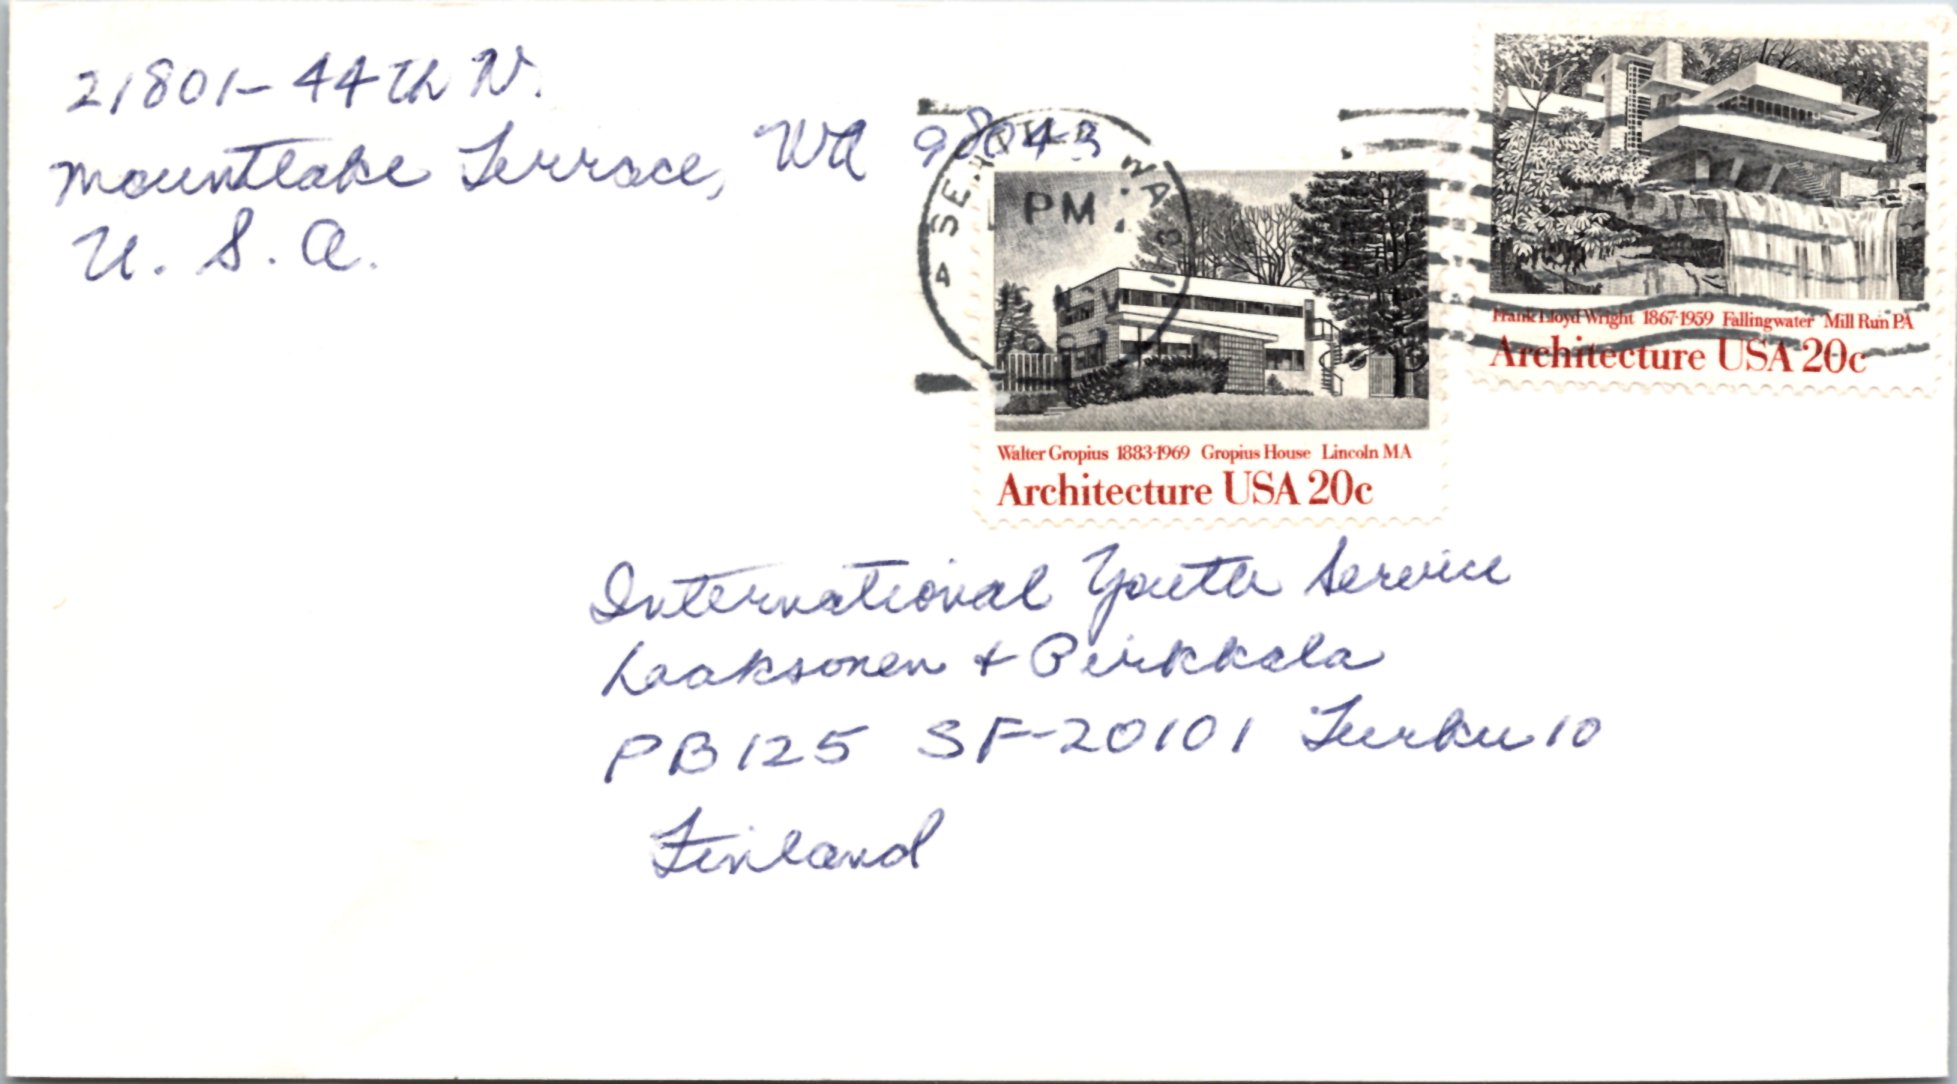 21801-44th W.
Mountlake Terrace, WA 98043
U.S.A.
WA
PM
NOV
Frank Lloyd Wright 1867-1959 Fallingwater Mill Run PA
Architecture USA 20c
Walter Gropius 1883-1969 Gropius House Lincoln MA
Architecture USA 20c
International Youth Service
Laaksonen + Pirkkala
PB 125 SF-20101 Turku 10
Finland